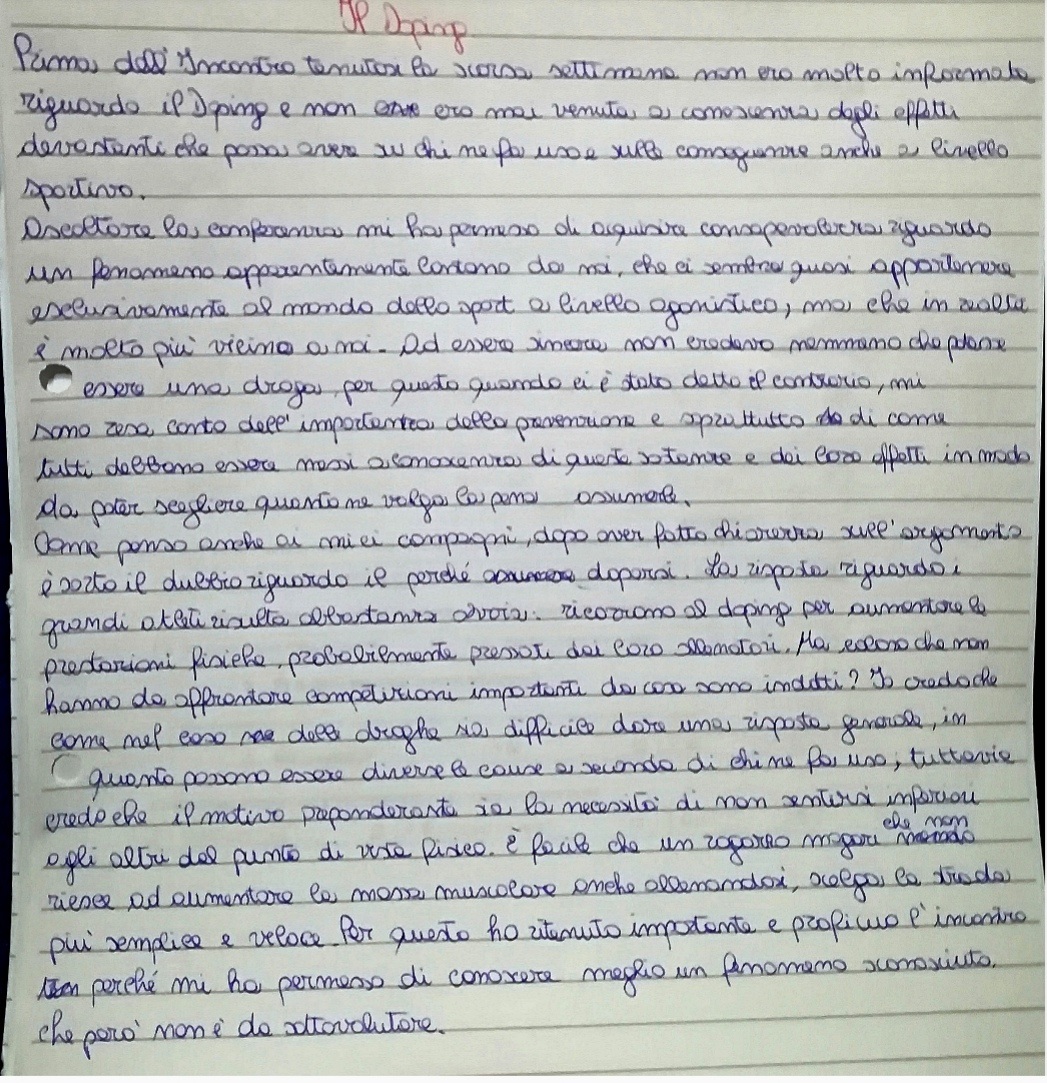 Il Doping
Prima dell'Incontro tenutosi la scorsa settimana non ero molto informata
riguardo il Doping e non ero mai venuta a conoscenza degli effetti
devastanti che possa avere su chi ne fa uso e sulle conseguenze anche a livello
sportivo.
Ascoltare la conferenza mi ha permesso di aquisire consapevolezza riguardo
un fenomeno apparentemente lontano da noi, che ci sembra quasi appartenere
esclusivamente al mondo dello sport a livello agonistico, ma che in realtà
è molto più vicino a noi. Ad essere sincera non credevo nemmeno che potesse
essere una droga, per questo quando ci è stato detto il contrario, mi
sono resa conto dell'importanza della prevenzione e soprattutto di come
tutti debbano essere messi a conoscenza di queste sostanze e dei loro effetti in modo
da poter scegliere quanto ne valga la pena assumerle.
Come penso anche ai miei compagni, dopo aver fatto chiarezza sull'argomento
è sorto il dubbio riguardo il perché doparsi. La risposta riguardo i
grandi atleti risulta abbastanza ovvia: ricorrono al doping per aumentare le
prestazioni fisiche, probabilmente pressati dai loro allenatori. Ma coloro che non
hanno da affrontare competizioni importanti da cosa sono indotti? Io credo che
come nel caso delle droghe sia difficile dare una risposta generale, in
quanto possono essere diverse le cause a seconda di chi ne fa uso, tuttavia
credo che il motivo preponderante sia la necessità di non sentirsi inferiori
agli altri dal punto di vista fisico. è facile che un ragazzo magari che non
riesce ad aumentare la massa muscolare anche allenandosi, scelga la strada
più semplice e veloce. Per questo ho ritenuto importante e proficuo l'incontro
perché mi ha permesso di conoscere meglio un fenomeno sconosciuto,
che però non è da sottovalutare.